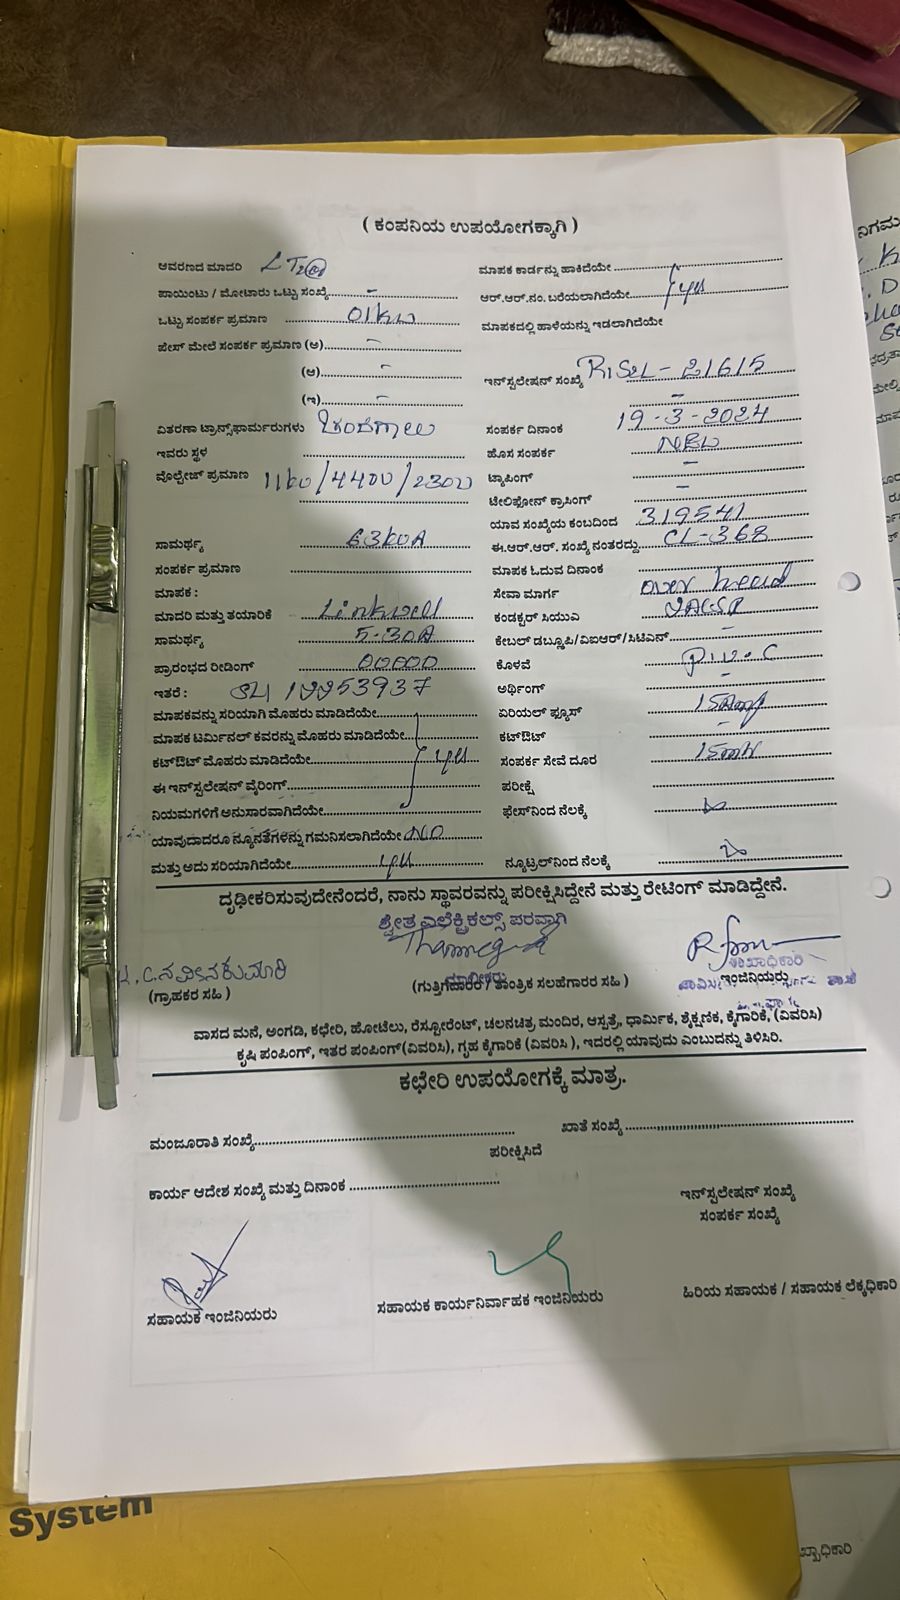 ( ಕಂಪನಿಯ ಉಪಯೋಗಕ್ಕಾಗಿ )
ಆವರಣದ ಮಾದರಿ LT2(a)
ಪಾಯಿಂಟು / ಮೋಟಾರು ಒಟ್ಟು ಸಂಖ್ಯೆ -
ಒಟ್ಟು ಸಂಪರ್ಕ ಪ್ರಮಾಣ 01KW
ಫೇಸ್ ಮೇಲೆ ಸಂಪರ್ಕ ಪ್ರಮಾಣ (ಅ) -
(ಆ) -
(ಇ) -
ವಿತರಣಾ ಟ್ರಾನ್ಸ್‌ಫಾರ್ಮರುಗಳು
ಇವರು ಸ್ಥಳ
ವೋಲ್ಟೇಜ್ ಪ್ರಮಾಣ 11KV/440V/230V
ಸಾಮರ್ಥ್ಯ 63KVA
ಸಂಪರ್ಕ ಪ್ರಮಾಣ
ಮಾಪಕ :
ಮಾದರಿ ಮತ್ತು ತಯಾರಿಕೆ Linkwell
ಸಾಮರ್ಥ್ಯ 5-30A
ಪ್ರಾರಂಭದ ರೀಡಿಂಗ್ 00000
ಇತರೆ : 19953937
ಮಾಪಕವನ್ನು ಸರಿಯಾಗಿ ಮೊಹರು ಮಾಡಿದೆಯೇ
ಮಾಪಕ ಟರ್ಮಿನಲ್ ಕವರನ್ನು ಮೊಹರು ಮಾಡಿದೆಯೇ
ಕಟ್‌ಔಟ್ ಮೊಹರು ಮಾಡಿದೆಯೇ yes
ಈ ಇನ್‌ಸ್ಟಲೇಷನ್ ವೈರಿಂಗ್
ನಿಯಮಗಳಿಗೆ ಅನುಸಾರವಾಗಿದೆಯೇ
ಯಾವುದಾದರೂ ನ್ಯೂನತೆಗಳನ್ನು ಗಮನಿಸಲಾಗಿದೆಯೇ NO
ಮತ್ತು ಅದು ಸರಿಯಾಗಿದೆಯೇ yes
ಮಾಪಕ ಕಾರ್ಡನ್ನು ಹಾಕಿದೆಯೇ
ಆರ್.ಆರ್.ನಂ. ಬರೆಯಲಾಗಿದೆಯೇ yes
ಮಾಪಕದಲ್ಲಿ ಹಾಳೆಯನ್ನು ಇಡಲಾಗಿದೆಯೇ
ಇನ್‌ಸ್ಟಲೇಷನ್ ಸಂಖ್ಯೆ 21615
-
ಸಂಪರ್ಕ ದಿನಾಂಕ 19-3-2024
ಹೊಸ ಸಂಪರ್ಕ NEW
ಟ್ಯಾಪಿಂಗ್ -
ಟೆಲಿಫೋನ್ ಕ್ರಾಸಿಂಗ್ -
ಯಾವ ಸಂಖ್ಯೆಯ ಕಂಬದಿಂದ 319541
ಈ.ಆರ್.ಆರ್. ಸಂಖ್ಯೆ ನಂತರದ್ದು CL-368
ಮಾಪಕ ಓದುವ ದಿನಾಂಕ
ಸೇವಾ ಮಾರ್ಗ over head
ಕಂಡಕ್ಟರ್ ಸಿಯುಎ
ಕೇಬಲ್ ಡಬ್ಲ್ಯೂಪಿ/ವಿಐಆರ್/ಸಿಟಿಎಸ್ -
ಕೊಳವೆ P.V.C
ಅರ್ಥಿಂಗ್ -
ಏರಿಯಲ್ ಫ್ಯೂಸ್ 15Amp
ಕಟ್‌ಔಟ್ -
ಸಂಪರ್ಕ ಸೇವೆ ದೂರ
ಪರೀಕ್ಷೆ
ಫೇಸ್‌ನಿಂದ ನೆಲಕ್ಕೆ
ನ್ಯೂಟ್ರಲ್‌ನಿಂದ ನೆಲಕ್ಕೆ
ದೃಢೀಕರಿಸುವುದೇನೆಂದರೆ, ನಾನು ಸ್ಥಾವರವನ್ನು ಪರೀಕ್ಷಿಸಿದ್ದೇನೆ ಮತ್ತು ರೇಟಿಂಗ್ ಮಾಡಿದ್ದೇನೆ.
ಶ್ವೇತ ಎಲೆಕ್ಟ್ರಿಕಲ್ಸ್ ಪರವಾಗಿ
(ಗ್ರಾಹಕರ ಸಹಿ )
ಮಾಲೀಕರು
(ಗುತ್ತಿಗೆದಾರರ / ತಾಂತ್ರಿಕ ಸಲಹೆಗಾರರ ಸಹಿ )
ಶಾಖಾಧಿಕಾರಿ
ಇಂಜಿನಿಯರು
ವಾಸದ ಮನೆ, ಅಂಗಡಿ, ಕಛೇರಿ, ಹೋಟೆಲು, ರೆಸ್ಟೋರೆಂಟ್, ಚಲನಚಿತ್ರ ಮಂದಿರ, ಆಸ್ಪತ್ರೆ, ಧಾರ್ಮಿಕ, ಶೈಕ್ಷಣಿಕ, ಕೈಗಾರಿಕೆ, (ವಿವರಿಸಿ)
ಕೃಷಿ ಪಂಪಿಂಗ್, ಇತರ ಪಂಪಿಂಗ್(ವಿವರಿಸಿ), ಗೃಹ ಕೈಗಾರಿಕೆ (ವಿವರಿಸಿ ), ಇದರಲ್ಲಿ ಯಾವುದು ಎಂಬುದನ್ನು ತಿಳಿಸಿರಿ.
ಕಛೇರಿ ಉಪಯೋಗಕ್ಕೆ ಮಾತ್ರ.
ಮಂಜೂರಾತಿ ಸಂಖ್ಯೆ
ಖಾತೆ ಸಂಖ್ಯೆ
ಪರೀಕ್ಷಿಸಿದೆ
ಕಾರ್ಯ ಆದೇಶ ಸಂಖ್ಯೆ ಮತ್ತು ದಿನಾಂಕ
ಇನ್‌ಸ್ಟಲೇಷನ್ ಸಂಖ್ಯೆ
ಸಂಪರ್ಕ ಸಂಖ್ಯೆ
ಸಹಾಯಕ ಇಂಜಿನಿಯರು
ಸಹಾಯಕ ಕಾರ್ಯನಿರ್ವಾಹಕ ಇಂಜಿನಿಯರು
ಹಿರಿಯ ಸಹಾಯಕ / ಸಹಾಯಕ ಲೆಕ್ಕಧಿಕಾರಿ
System